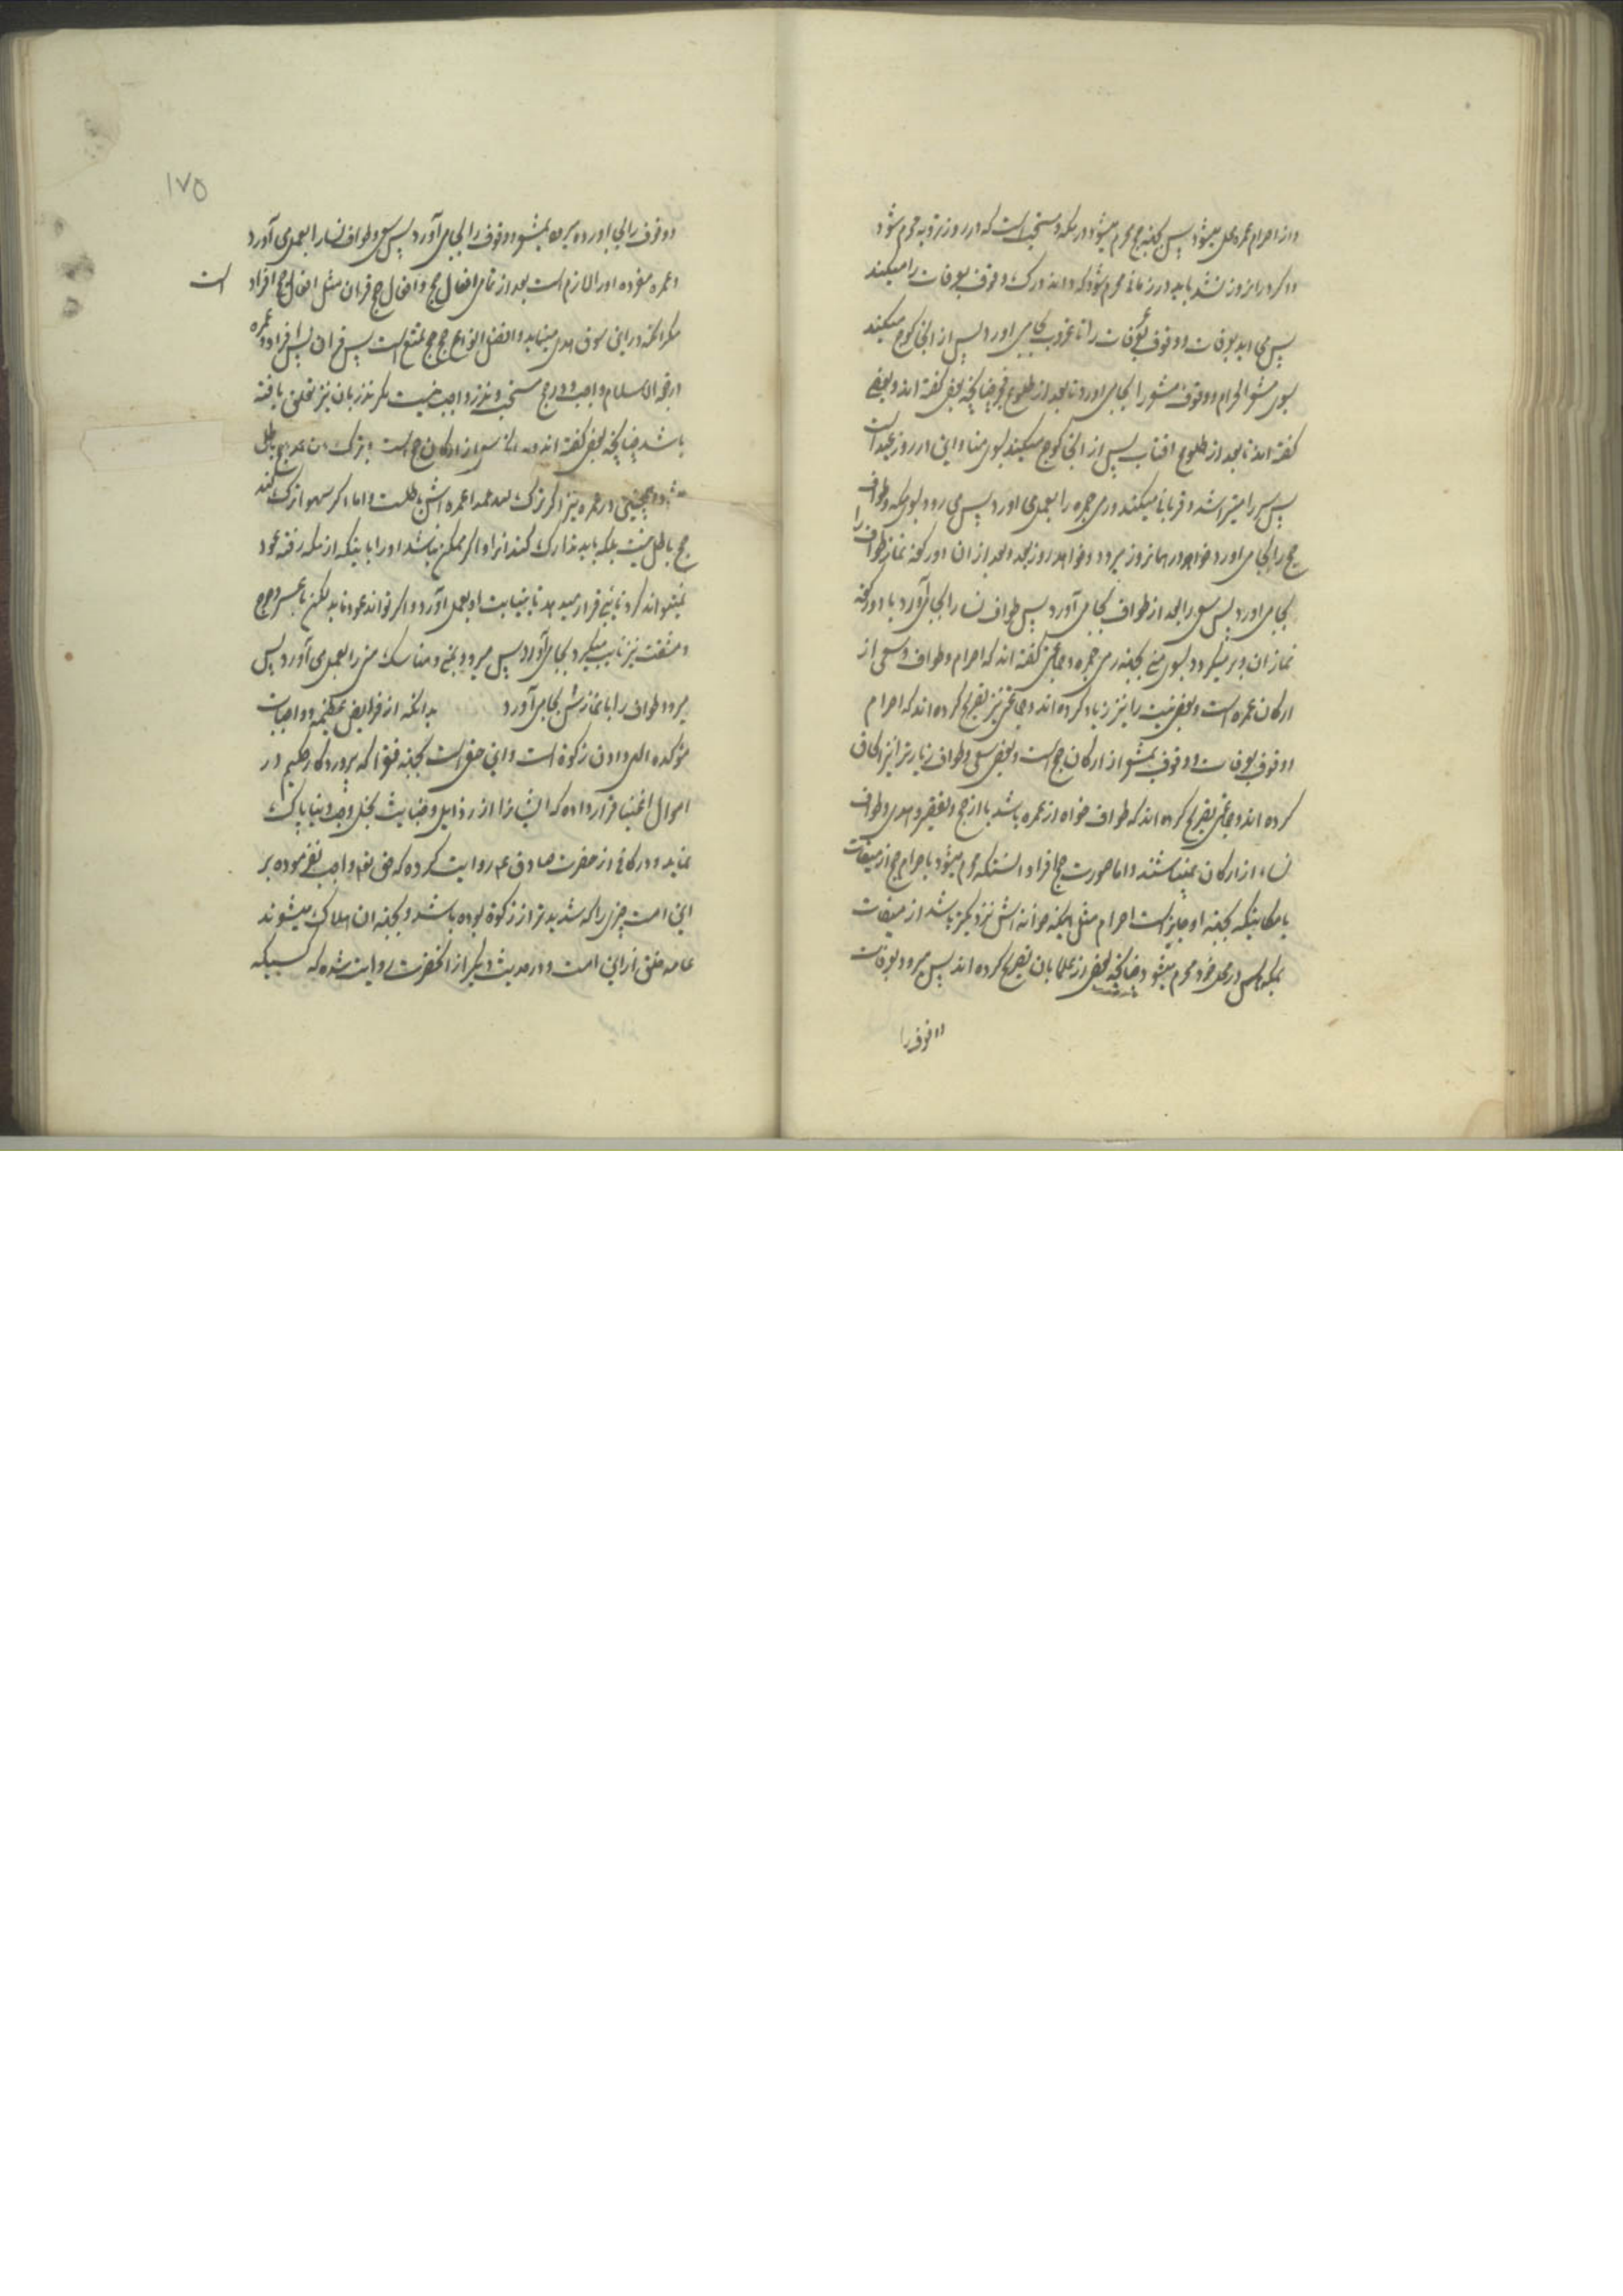 واز احرام عمره محل میشود پس بجهة حج محرم میشود در مکه و مستحب است که در روز ترویه محرم شود
واکر در انروز نشد باید در زمانی محرم شود که داند درک وقوف بعرفات را میکند
پس می اید بعرفات و وقوف بعرفات را تا غروب بجا می اورد پس از انجا کوچ میکند
بسوی مشعر الحرام و وقوف مشعر را بجا می اورد تا بعد از طلوع فجر چنانچه بعضی کفته اند و بعضی
کفته اند تا بعد از طلوع افتاب پس از انجا کوچ میکند بسوی منا و این در روز عید است
پس سر را میتراشد و قربانی میکند و رمی جمره را بعمل می اورد پس می رود بسوی مکه و طواف
حج را بجا می اورد خواه در همانروز برود و خواه در روز بعد و بعد از ان دو رکعة نماز طواف را
بجا می اورد پس سعی را بعد از طواف بجا می آورد پس طواف نسا را بجا می آورد با دو رکعة
نماز ان و بر میکردد بسوی منی بجهة رمی جمره و جمعی کفته اند که احرام و طواف و سعی از
ارکان عمره است و بعضی نیت را نیز زیاد کرده اند و جمعی نیز تصریح کرده اند که احرام
و وقوف بعرفات و وقوف بمشعر از ارکان حج است و بعضی سعی و طواف زیارت را نیز الحاق
کرده اند و جمعی تصریح کرده اند که طواف خواه از عمره باشد یا از حج و تقصیر و هدی و طواف
نساء از ارکان نمیباشند و اما صورت حج افراد انستکه محرم میشود باحرام حج از میقات
یا مکانیکه بجهة او جایز است احرام مثل اینکه خوانه اش نزدیکتر باشد از میقات
بمکه پس در محل خود محرم میشود چنانچه بعضی از علما بان تصریح کرده اند پس میرود بعرفات
و وقوف را
۱۷۵
و وقوف را بجا اورده میرود بمشعر و وقوف را بجا می آورد پس سعی و طواف نسا را بعمل می آورد
و عمره مفرده او را لازم است بعد از تمامی افعال حج و افعال حج قران مثل افعال حج افراد است
مکر انکه در این سوق هدی مینماید و افضل انواع حج حج تمتع است پس قران پس افراد و عمره
در حجة الاسلام واجب و در حج مستحب و نذر واجب نیست مکر نذر بان نیز تعلق یافته
باشد چنانچه بعضی کفته اند از ارکان حج است و بترک عمدا حج باطل
میشود و همچنین در عمره نیز اکر ترک کند عمدا عمره اش باطلست و اما اکر سهوا ترک کند
حج باطل نیست بلکه باید تدارک کند انرا و اکر ممکن نباشد او را باینکه از مکه رفته عود
نمیتواند کرد نایبی قرار میدهد تا بنیابت او بعمل آورد و اکر تواند عود نماید لکن با عسر و حرج
و مشقت نیز نایب میکیرد بجا می آورد پس میرود بمنی و مناسک منی را بعمل می آورد پس
میرود طواف را با نمازش بجا می آورد بدانکه از فرایض عظیمه و واجبات
مؤکده الهی دادن زکوة است و این حق است بجهة فقرا که پروردکار حکیم در
اموال اغنیا قرار داده که ایشانرا از رذایل و خباثت بخل و حب دنیا پاک
نماید و در کافی از حضرت صادق ع روایت کرده که حق تع واجب نفرموده بر
این امت چیزی را که شدیدتر از زکوة بوده باشد و بجهة ان هلاک میشوند
عامه خلق از این امت و در حدیث دیکر از انحضرت روایت شده که کسیکه